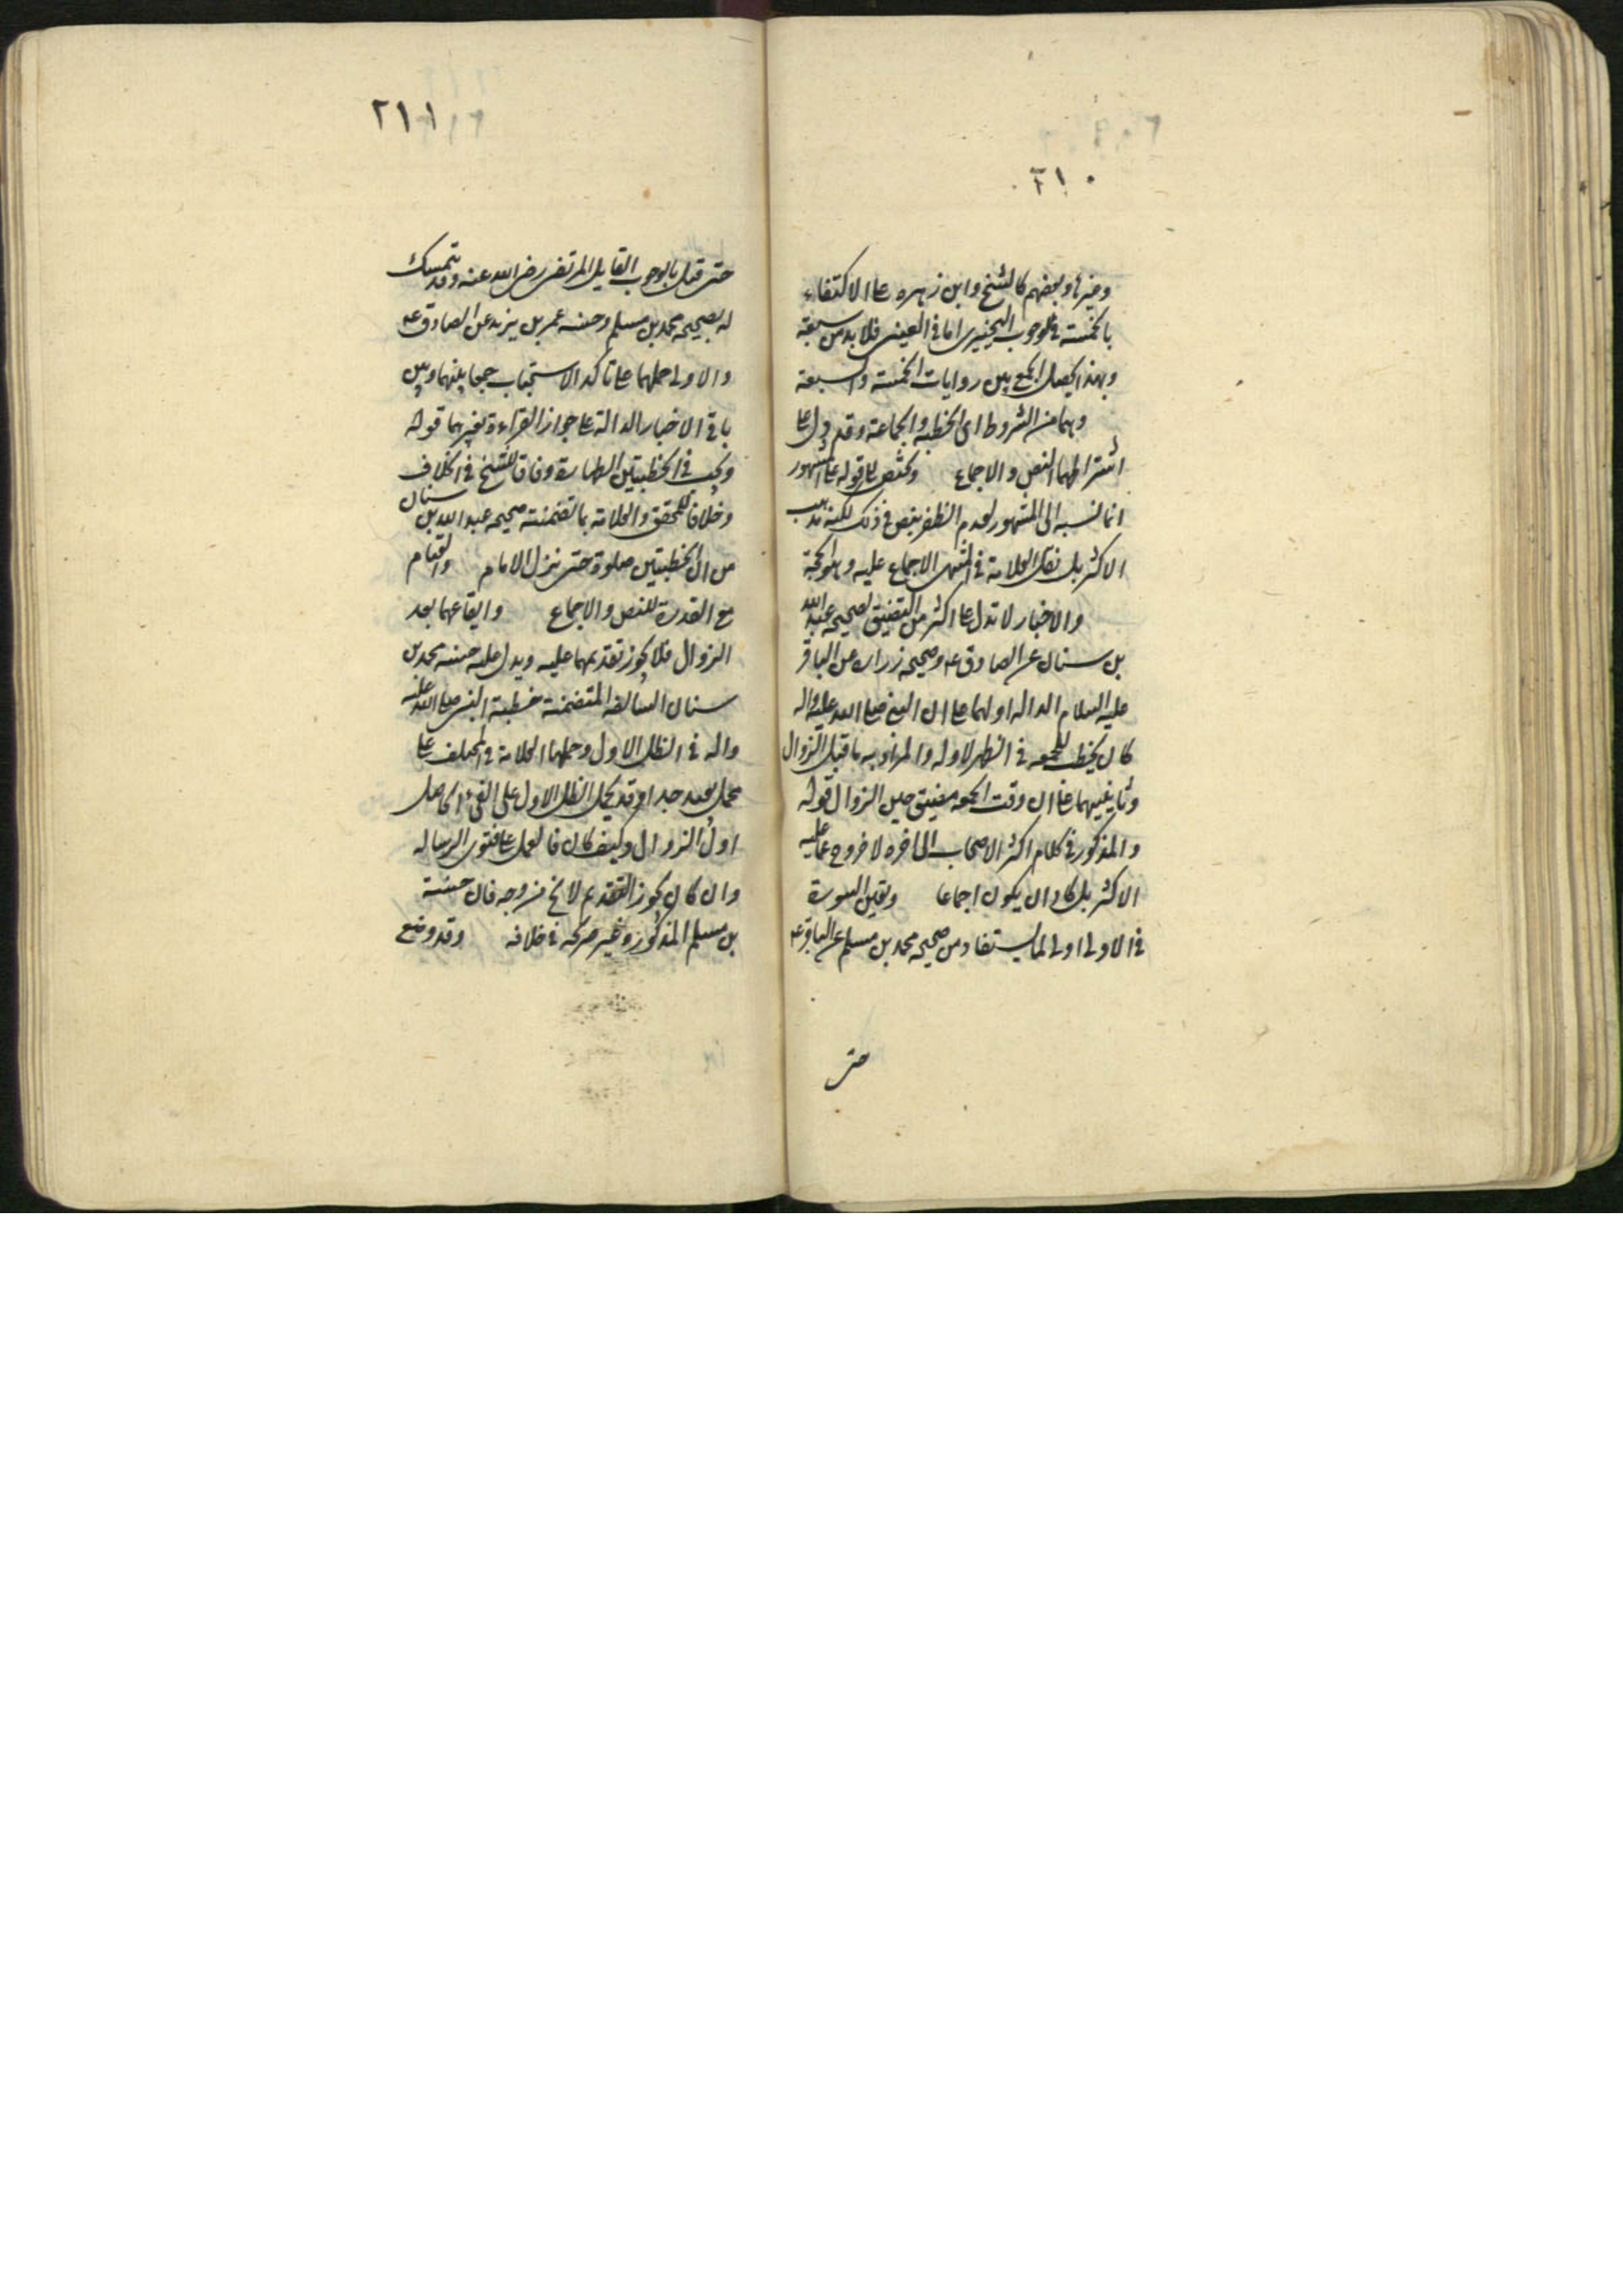 ٢١٠
وغيرها وبعضهم كالشيخ وابن زهره على الاكتفاء
بالخمسة في الوجوب التخييرى اما في العينى فلا بد من سبعة
وبهذا يحصل الجمع بين روايات الخمسة والسبعة
وهما من الشروط اى الخطبة والجماعة وقد دل على
اشتراطهما النص والاجماع قوله على المشهور
انما نسبه الى المشهور لعدم الظفر بنص في ذلك لكنه مذهب
الاكثر بل نقل العلامة في المنتهى الاجماع عليه وهو الحجة
والاخبار لا تدل على اكثر من التضييق لصحيحه عبد الله
بن سنان عن الصادق عه وصحيحه زراره عن الباقر
عليه السلام الداله اولهما على ان النبي صلى الله عليه واله
كان يخطب للجمعه في الظل الاول والمراد به ما قبل الزوال
وثانيهما على ان وقت الجمعه مضيق حين الزوال قوله
والمذكور في كلام اكثر الاصحاب الى اخره لا خروج عما عليه
الاكثر بل كاد ان يكون اجماعا وتعين السورة
في الاولى اولى لما يستفاد من صحيحه محمد بن مسلم عن الباقر عه
حتى
٢١١
حتى قيل بالوجوب القايل المرتضى رضى الله عنه وقد يتمسك
له بصحيحه محمد بن مسلم وحسنه عمر بن يزيد عن الصادق عه
والاولى حملهما على تاكد الاستحباب جمعا بينهما وبين
باقي الاخبار الدالة على جواز القراءة بغيرهما قوله
ويجب في الخطبتين الطهارة وفاقا للشيخ في الخلاف
وخلافا للمحقق والعلامة بما تضمنته صحيحه عبد الله بن سنان
من ان الخطبتين صلوة حتى ينزل الامام والقيام
مع القدرة للنص والاجماع وايقاعهما بعد
الزوال فلا يجوز تقديمهما عليه ويدل عليه حسنه محمد بن
سنان السالفه المتضمنة خطبة النبى صلى الله عليه
واله في الظل الاول وحملها العلامة في المختلف على
محمل بعيد جدا وقد يحمل الظل الاول على الفىء الحاصل
اول الزوال وكيف كان فالعمل على فتوى الرساله
وان كان يجوز التقديم لا يخ من وجه فان حسنة
بن مسلم المذكوره غير صريحه في خلافه وقد وضع